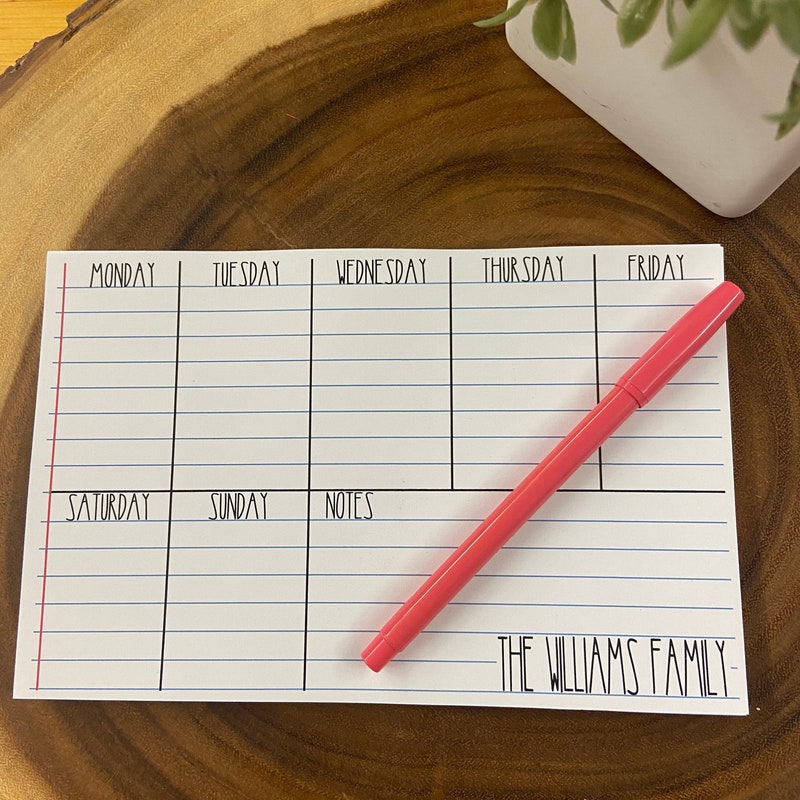 MONDAY TUESDAY WEDNESDAY THURSDAY FRIDAY
SATURDAY SUNDAY NOTES
THE WILLIAMS FAMILY